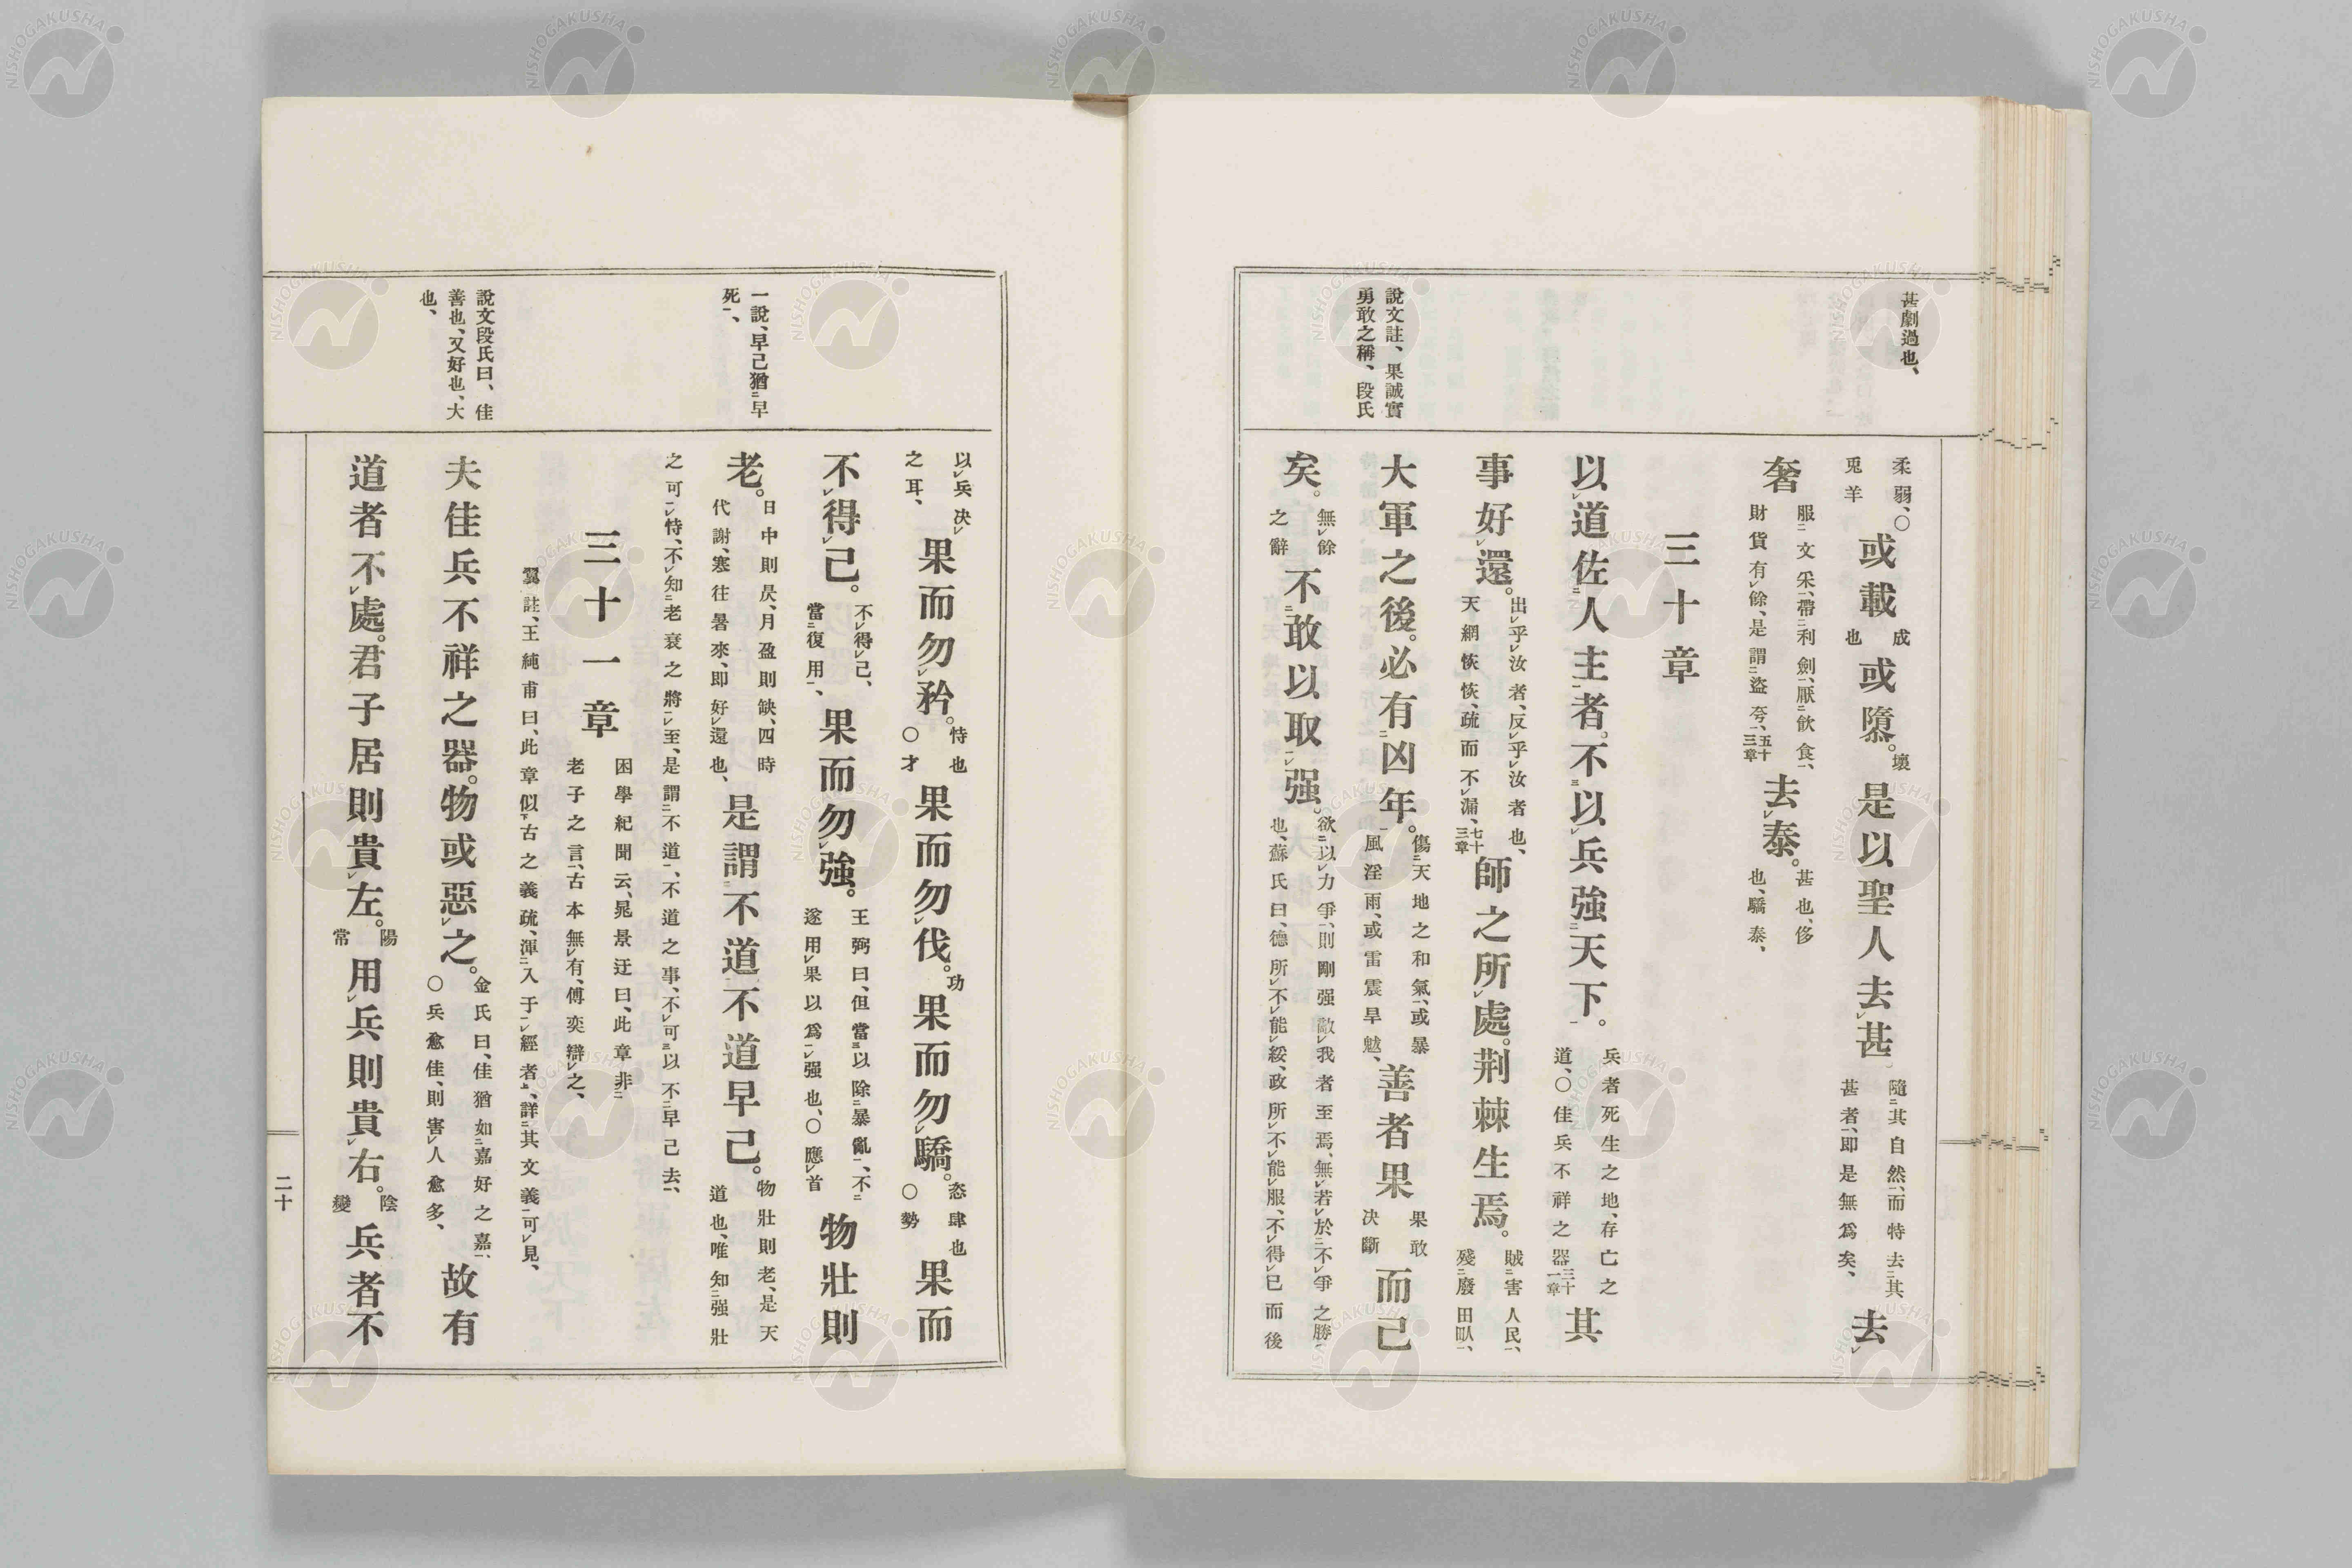 甚劇過也、
柔弱、○
兎羊
或載
成
也
或隳。
壞
是以聖人去甚
隨其自然、而特去其
甚者、即是無爲矣、
去
奢
服文采、帶利劍、厭飮食、
財貨有餘、是謂盜夸、五十三章
去泰。
甚也、侈
也、驕泰、
三十章
以道佐人主者。不以兵強天下。
兵者死生之地、存亡之
道、○佳兵不祥之器三十一章
其
事好還。
出乎汝者、反乎汝者也、
天網恢恢、疏而不漏、七十三章
師之所處。荆棘生焉。
賊害人民、
殘廢田畝、
說文註、果誠實
勇敢之稱、段氏
大軍之後。必有凶年。
傷天地之和氣、或暴
風淫雨、或雷震旱魃、
善者果
果敢
決斷
而已
矣。
無餘
之辭
不敢以取强。
欲以力爭、則剛强敵我者至焉、無若於不爭之勝
也、蘇氏曰、德所不能綏、政所不能服、不得已而後
以兵決
之耳、
果而勿矜。
恃也
○才
果而勿伐。
功
果而勿驕。
恣肆也
○勢
果而
不得已。
不得已、
當復用、
果而勿強。
王弼曰、但當以除暴亂、不
遂用果以爲强也、○應首
物壯則
一說、早已猶早
死、
老。
日中則昃、月盈則缺、四時
代謝、寒往暑來、即好還也、
是謂不道不道早已。
物壯則老、是天
道也、唯知强壯
之可恃、不知老衰之將至、是謂不道、不道之事、不可以不早已去、
三十一章
困學紀聞云、晁景迂曰、此章非
老子之言、古本無有、傅奕辯之、
翼註、王純甫曰、此章似古之義疏、渾入于經者、詳其文義可見、
說文段氏曰、佳
善也、又好也、大
也、
夫佳兵不祥之器。物或惡之。
金氏曰、佳猶如嘉好之嘉、
○兵愈佳、則害人愈多、
故有
道者不處。君子居則貴左。
陽
常
用兵則貴右。
陰
變
兵者不
二十